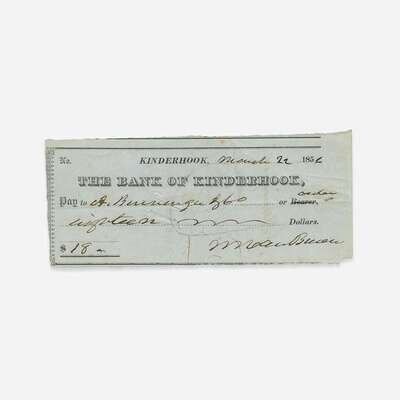 No. KINDERHOOK, March 22 1856
THE BANK OF KINDERHOOK,
order
Pay to A. Bininger & Co or Bearer,
eighteen Dollars.
$ 18 M Van Buren